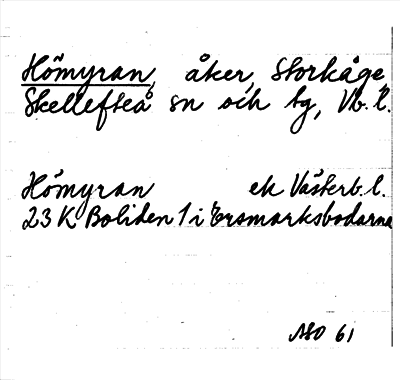 Hömyran, åker, Storkåge
Skellefteå sn och tg, Vb. l.
Hömyran ek Västerb. l.
23 K Boliden 1 i Ersmarksbodarna
61